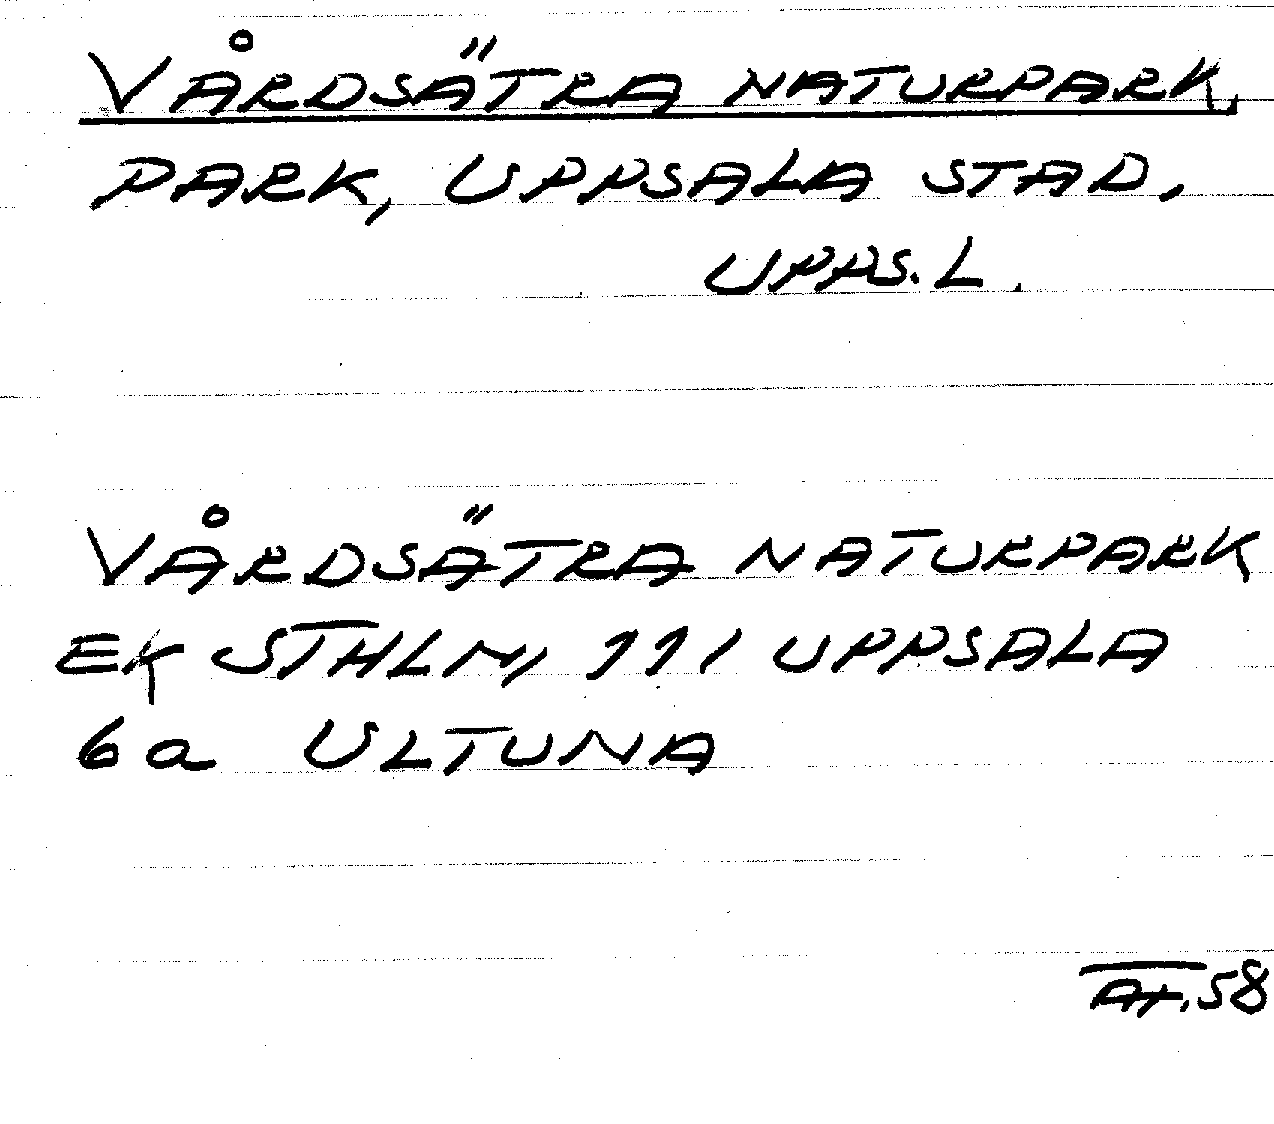 VÅRDSÄTRA NATURPARK,
PARK, UPPSALA STAD.
UPPS.L.
VÅRDSÄTRA NATURPARK
EK STHLM, 111 UPPSALA
6a ULTUNA
AT.58